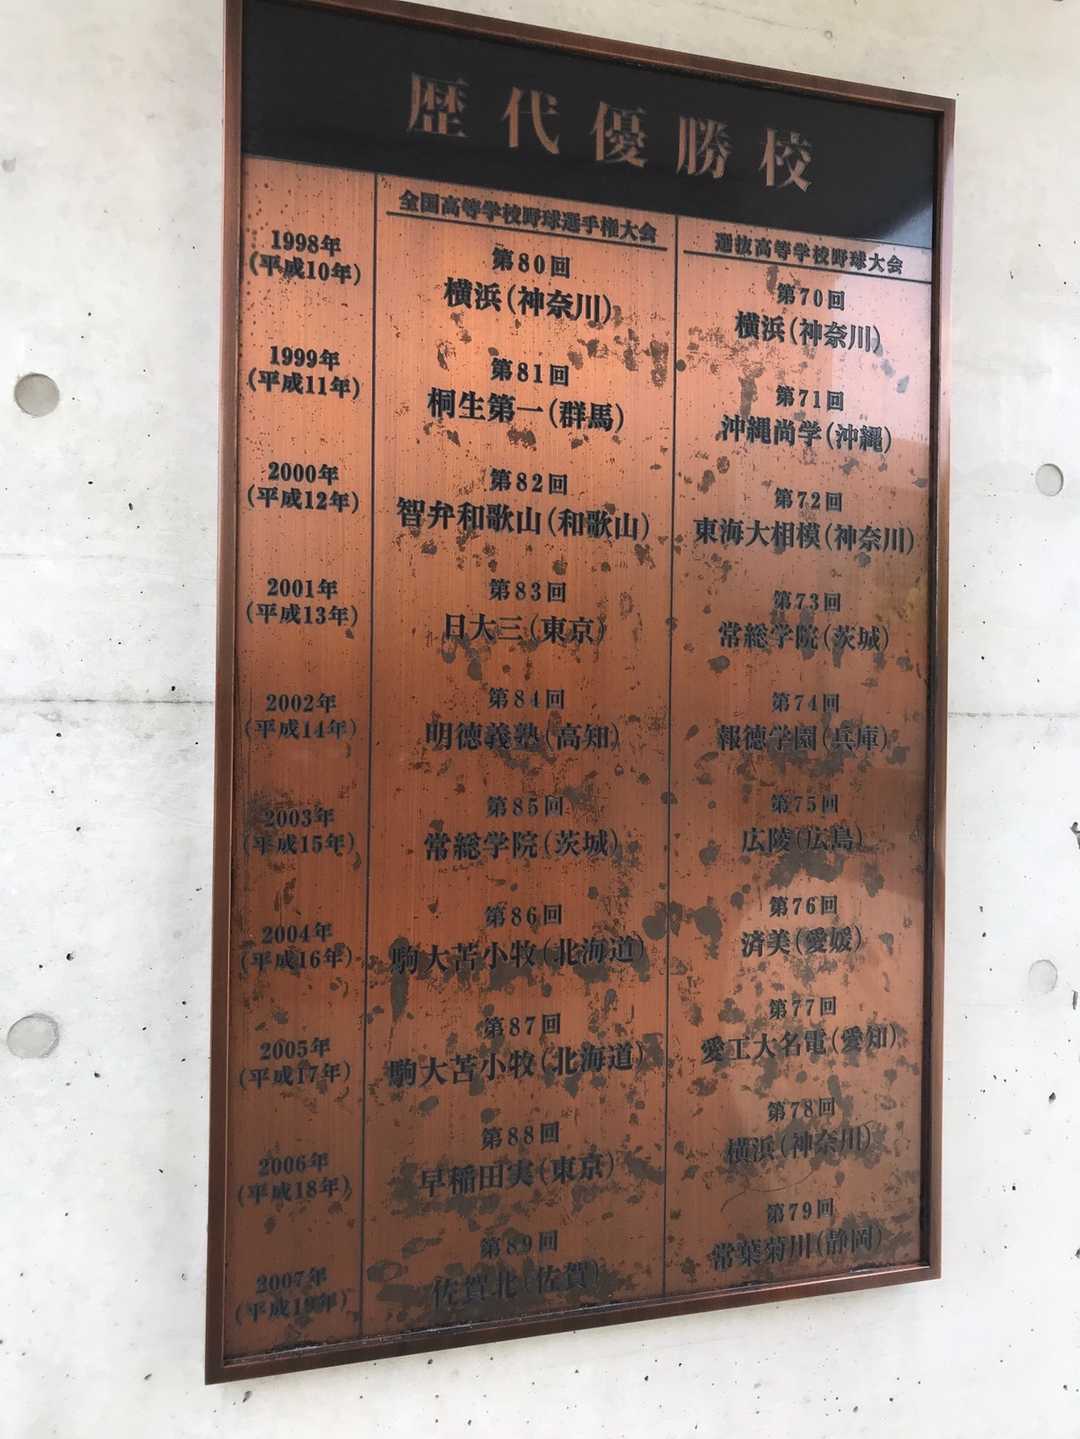 歴代優勝校
全国高等学校野球選手権大会
選抜高等学校野球大会
1998年
(平成10年)
第80回
横浜(神奈川)
第70回
横浜(神奈川)
1999年
(平成11年)
第81回
桐生第一(群馬)
第71回
沖縄尚学(沖縄)
2000年
(平成12年)
第82回
智弁和歌山(和歌山)
第72回
東海大相模(神奈川)
2001年
(平成13年)
第83回
日大三(東京)
第73回
常総学院(茨城)
2002年
(平成14年)
第84回
明徳義塾(高知)
第74回
報徳学園(兵庫)
2003年
(平成15年)
第85回
常総学院(茨城)
第75回
広陵(広島)
2004年
(平成16年)
第86回
駒大苫小牧(北海道)
第76回
済美(愛媛)
2005年
(平成17年)
第87回
駒大苫小牧(北海道)
第77回
愛工大名電(愛知)
2006年
(平成18年)
第88回
早稲田実(東京)
第78回
横浜(神奈川)
2007年
(平成19年)
第89回
佐賀北(佐賀)
第79回
常葉菊川(静岡)